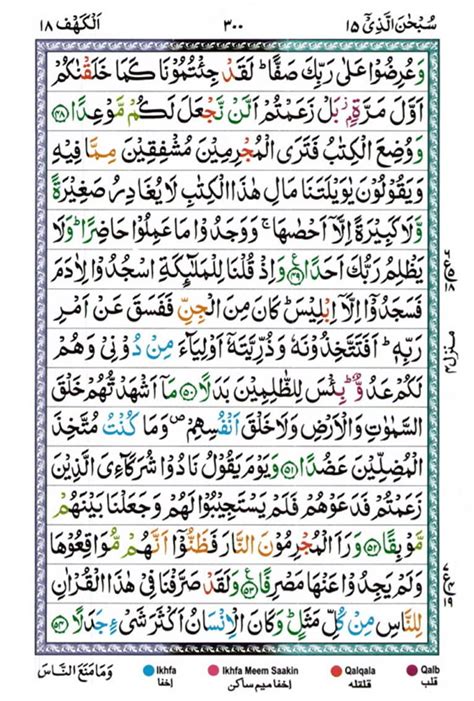 سُبْحٰنَ الَّذِیْۤ ١٥ ٣٠٠ اَلْكَهْف ١٨
وَعُرِضُوْا عَلٰى رَبِّكَ صَفًّا ؕ لَقَدْ جِئْتُمُوْنَا كَمَا خَلَقْنٰكُمْ
اَوَّلَ مَرَّةٍۭ ؗ بَلْ زَعَمْتُمْ اَلَّنْ نَّجْعَلَ لَكُمْ مَّوْعِدًا ﴿٤٨﴾
وَوُضِعَ الْكِتٰبُ فَتَرَى الْمُجْرِمِیْنَ مُشْفِقِیْنَ مِمَّا فِیْهِ
وَیَقُوْلُوْنَ یٰوَیْلَتَنَا مَالِ هٰذَا الْكِتٰبِ لَا یُغَادِرُ صَغِیْرَةً
وَّلَا كَبِیْرَةً اِلَّاۤ اَحْصٰىهَا ۚ وَوَجَدُوْا مَا عَمِلُوْا حَاضِرًا ؕ وَلَا
یَظْلِمُ رَبُّكَ اَحَدًا ﴿٤٩﴾ وَاِذْ قُلْنَا لِلْمَلٰٓئِكَةِ اسْجُدُوْا لِاٰدَمَ
فَسَجَدُوْۤا اِلَّاۤ اِبْلِیْسَ ؕ كَانَ مِنَ الْجِنِّ فَفَسَقَ عَنْ اَمْرِ
رَبِّهٖ ؕ اَفَتَتَّخِذُوْنَهٗ وَذُرِّیَّتَهٗۤ اَوْلِیَآءَ مِنْ دُوْنِیْ وَهُمْ
لَكُمْ عَدُوٌّ ؕ بِئْسَ لِلظّٰلِمِیْنَ بَدَلًا ﴿٥٠﴾ مَاۤ اَشْهَدْتُّهُمْ خَلْقَ
السَّمٰوٰتِ وَالْاَرْضِ وَلَا خَلْقَ اَنْفُسِهِمْ ۪ وَمَا كُنْتُ مُتَّخِذَ
الْمُضِلِّیْنَ عَضُدًا ﴿٥١﴾ وَیَوْمَ یَقُوْلُ نَادُوْا شُرَكَآءِیَ الَّذِیْنَ
زَعَمْتُمْ فَدَعَوْهُمْ فَلَمْ یَسْتَجِیْبُوْا لَهُمْ وَجَعَلْنَا بَیْنَهُمْ
مَّوْبِقًا ﴿٥٢﴾ وَرَاَ الْمُجْرِمُوْنَ النَّارَ فَظَنُّوْۤا اَنَّهُمْ مُّوَاقِعُوْهَا
وَلَمْ یَجِدُوْا عَنْهَا مَصْرِفًا ﴿٥٣﴾ وَلَقَدْ صَرَّفْنَا فِیْ هٰذَا الْقُرْاٰنِ
لِلنَّاسِ مِنْ كُلِّ مَثَلٍ ؕ وَكَانَ الْاِنْسَانُ اَكْثَرَ شَیْءٍ جَدَلًا ﴿٥٤﴾
منزل ٤
وَمَا مَنَعَ النَّاسَ
Ikhfa Ikhfa Meem Saakin Qalqala Qalb
اخفا اخفا میم ساکن قلقلہ قلب